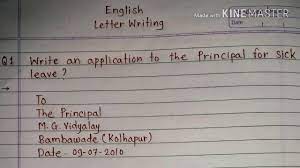 English
Letter Writing
Made with KINEMASTER
Date
Q1 Write an application to the Principal for sick
leave ?
→
To
The Principal
M. G. Vidyalay
Bambawade (Kolhapur)
Date - 09-07-2010